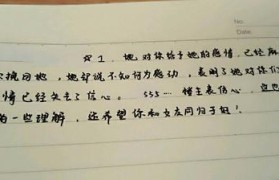 No:
Date:
☆1、她对你给予她的感情，已经麻
次挽回她，她却说不知何为感动，表明了她对你们
情已经失去了信心。555… 博主表伤心，
的一些理解，还希望你和女友同归于好！